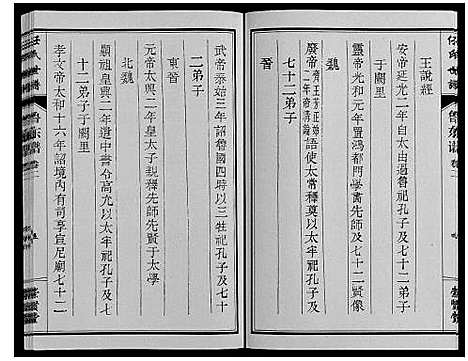 王說經
安帝延光二年自太山過魯祀孔子及七十二弟子
于闕里
靈帝光和元年置鴻都門學畫先聖及七十二賢像
魏
廢帝齊王芳正始二年帝講論語使太常釋奠以太牢祀孔子及
七十二弟子
晉
武帝泰始三年詔魯國四時以三牲祀孔子及七十
二弟子
東晉
元帝太興二年皇太子親釋先師先賢于太學
北魏
顯祖皇興二年遣中書令高允以太牢祀孔子及七
十二弟子于闕里
孝文帝太和十六年詔境內有司享宣尼廟七十二
任氏世譜
魯东谱
卷二